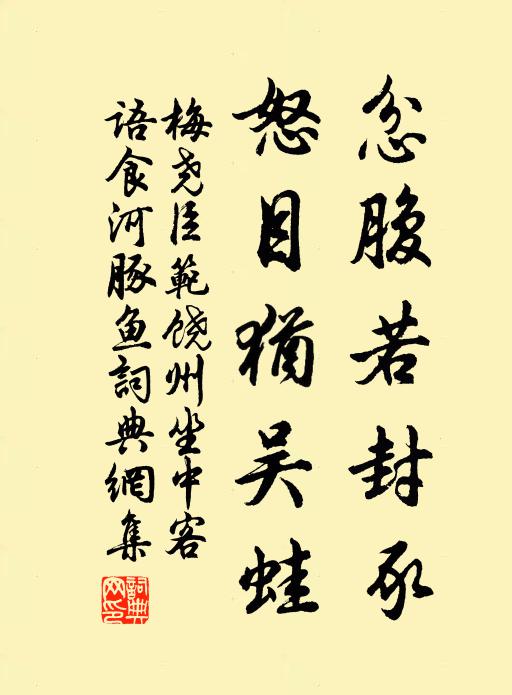 忿腹若封豕
怒目猶吴蛙
梅尧臣範饶州坐中客
语食河豚鱼詞典網集